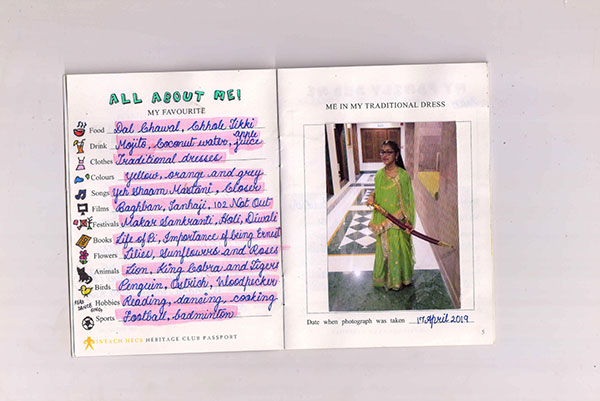 ALL ABOUT ME!
MY FAVOURITE
Food Dal Chawal, Chhole Tikki
Drink Mojito, Coconut water, apple juice
Clothes Traditional dresses
Colours yellow, orange and grey
Songs Yeh Shaam Mastani, Closer
Films Baghban, Tanhaji, 102 Not Out
Festivals Makar Sankranti, Holi, Diwali
Books Life of Pi, Importance of being Ernest
Flowers Lilies, Sunflowers and Roses
Animals Lion, King Cobra and Tigers
Birds Penguin, Ostrich, Woodpecker
Hobbies Reading, dancing, cooking
Sports Football, badminton
INTACH HECS HERITAGE CLUB PASSPORT
ME IN MY TRADITIONAL DRESS
Date when photograph was taken 17 April 2019
5